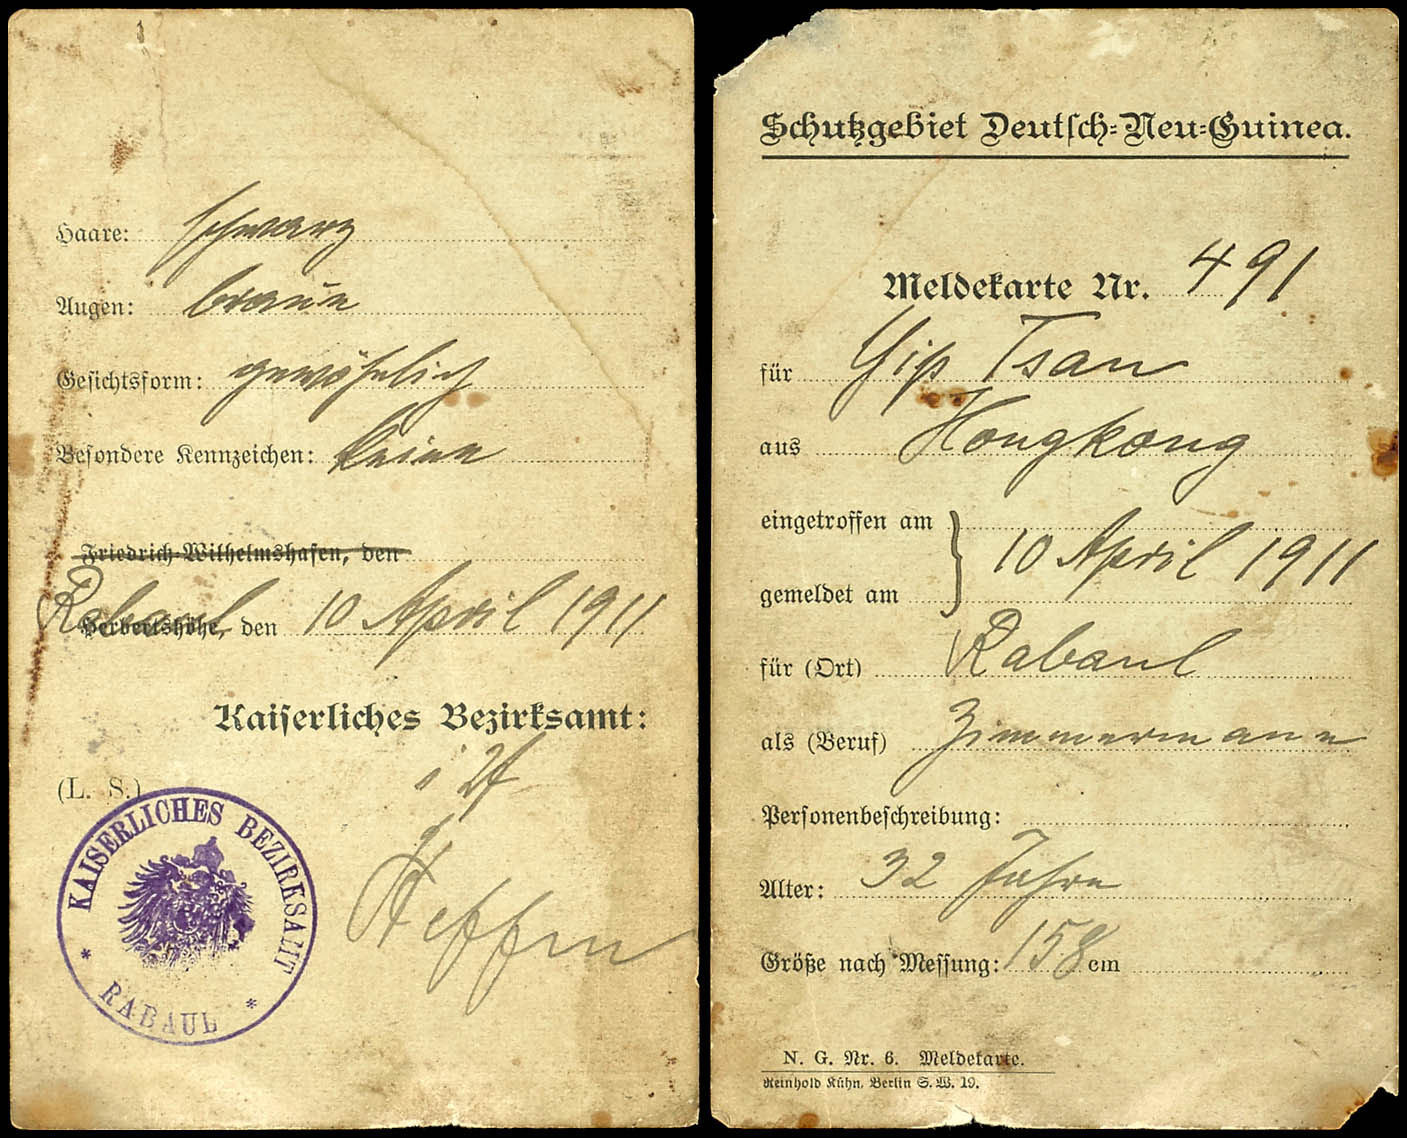 Haare: schwarz
Augen: braun
Gesichtsform: gewöhnlich
Besondere Kennzeichen: keine
Friedrich-Wilhelmshafen, den
Rabaul
Herbertshöhe, den 10 April 1911
Kaiserliches Bezirksamt:
(L. S.)
KAISERLICHES BEZIRKSAMT
* RABAUL *
Schutzgebiet Deutsch-Neu-Guinea.
Meldekarte Nr. 491
für Yip Tsan
aus Hongkong
eingetroffen am
gemeldet am } 10 April 1911
für (Ort) Rabaul
als (Beruf) Zimmermann
Personenbeschreibung:
Alter: 32 Jahre
Größe nach Messung: 158 cm
N. G. Nr. 6. Meldekarte.
Reinhold Kühn, Berlin S. W. 19.